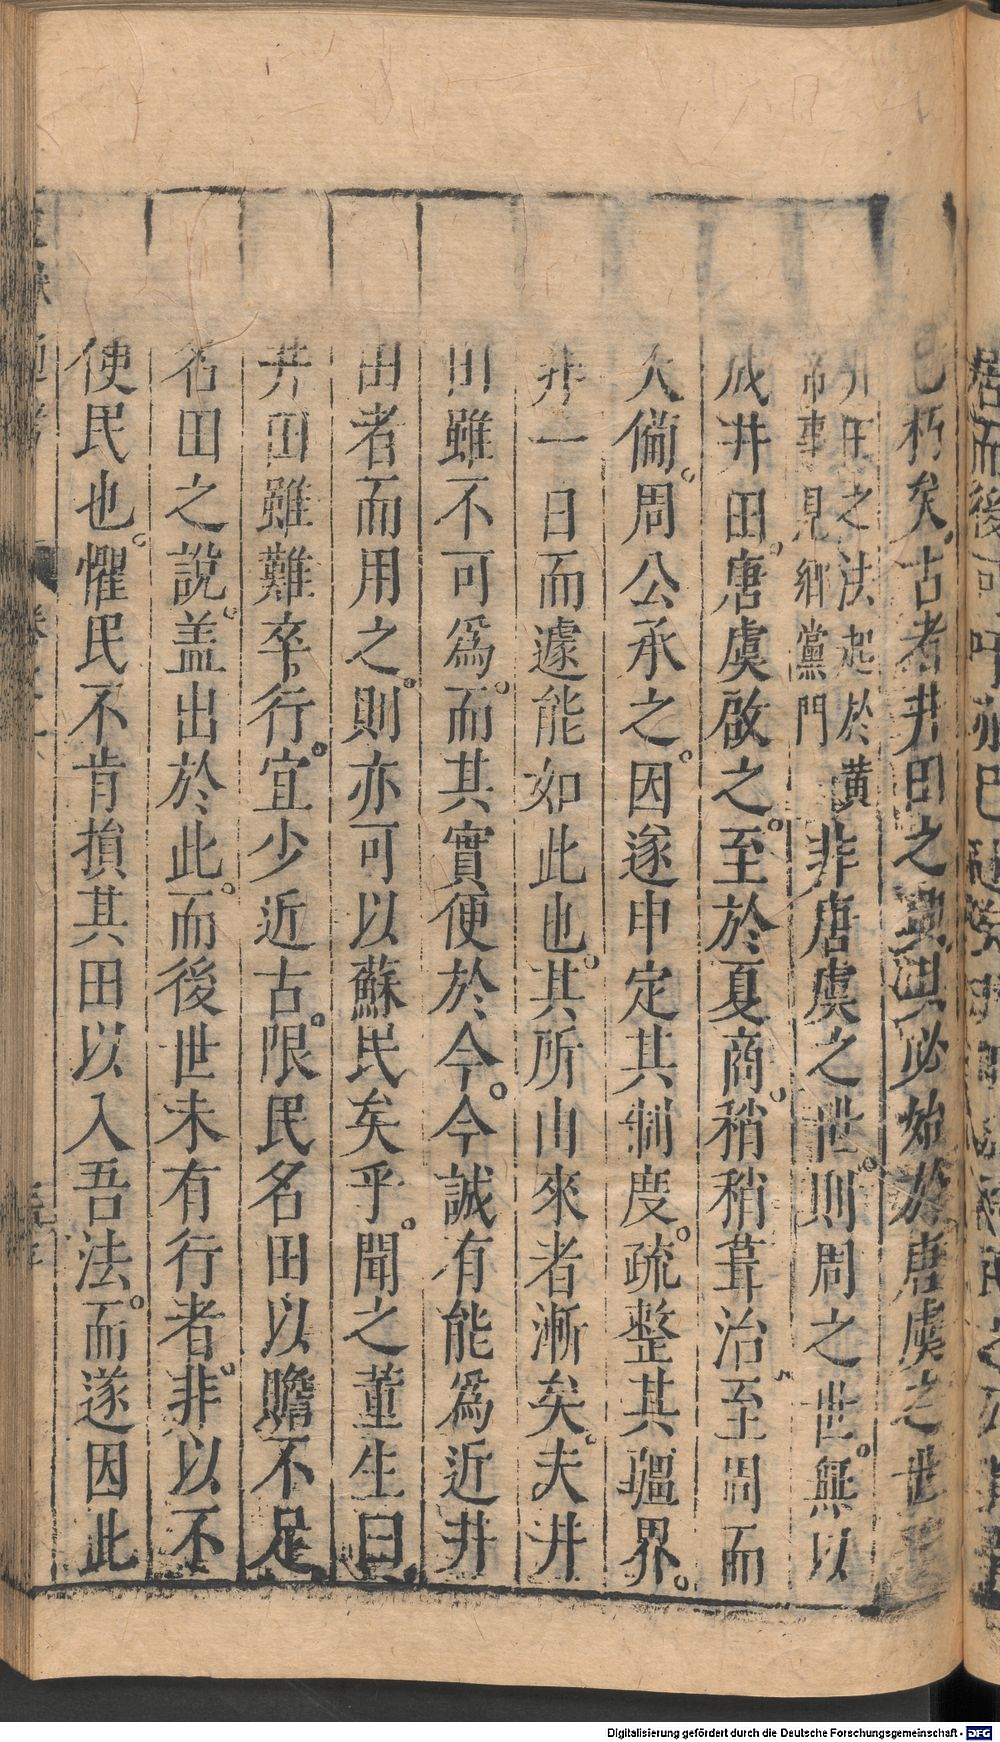 已朽矣。古者井田之興。其必始於唐虞之世
井田之法起於黃
帝事見鄉黨門
非唐虞之世。則周之世。無以
成井田。唐虞啟之。至於夏商。稍稍葺治。至周而
大備。周公承之。因遂申定其制度。疏整其疆界。
非一日而遽能如此也。其所由來者漸矣。夫井
田雖不可為。而其實便於今。今誠有能為近井
田者而用之。則亦可以蘇民矣乎。聞之董生曰
井田雖難卒行。宜少近古。限民名田以贍不足
名田之說。盖出於此。而後世未有行者。非以不
便民也。懼民不肯損其田以入吾法。而遂因此
Digitalisierung gefördert durch die Deutsche Forschungsgemeinschaft - DFG